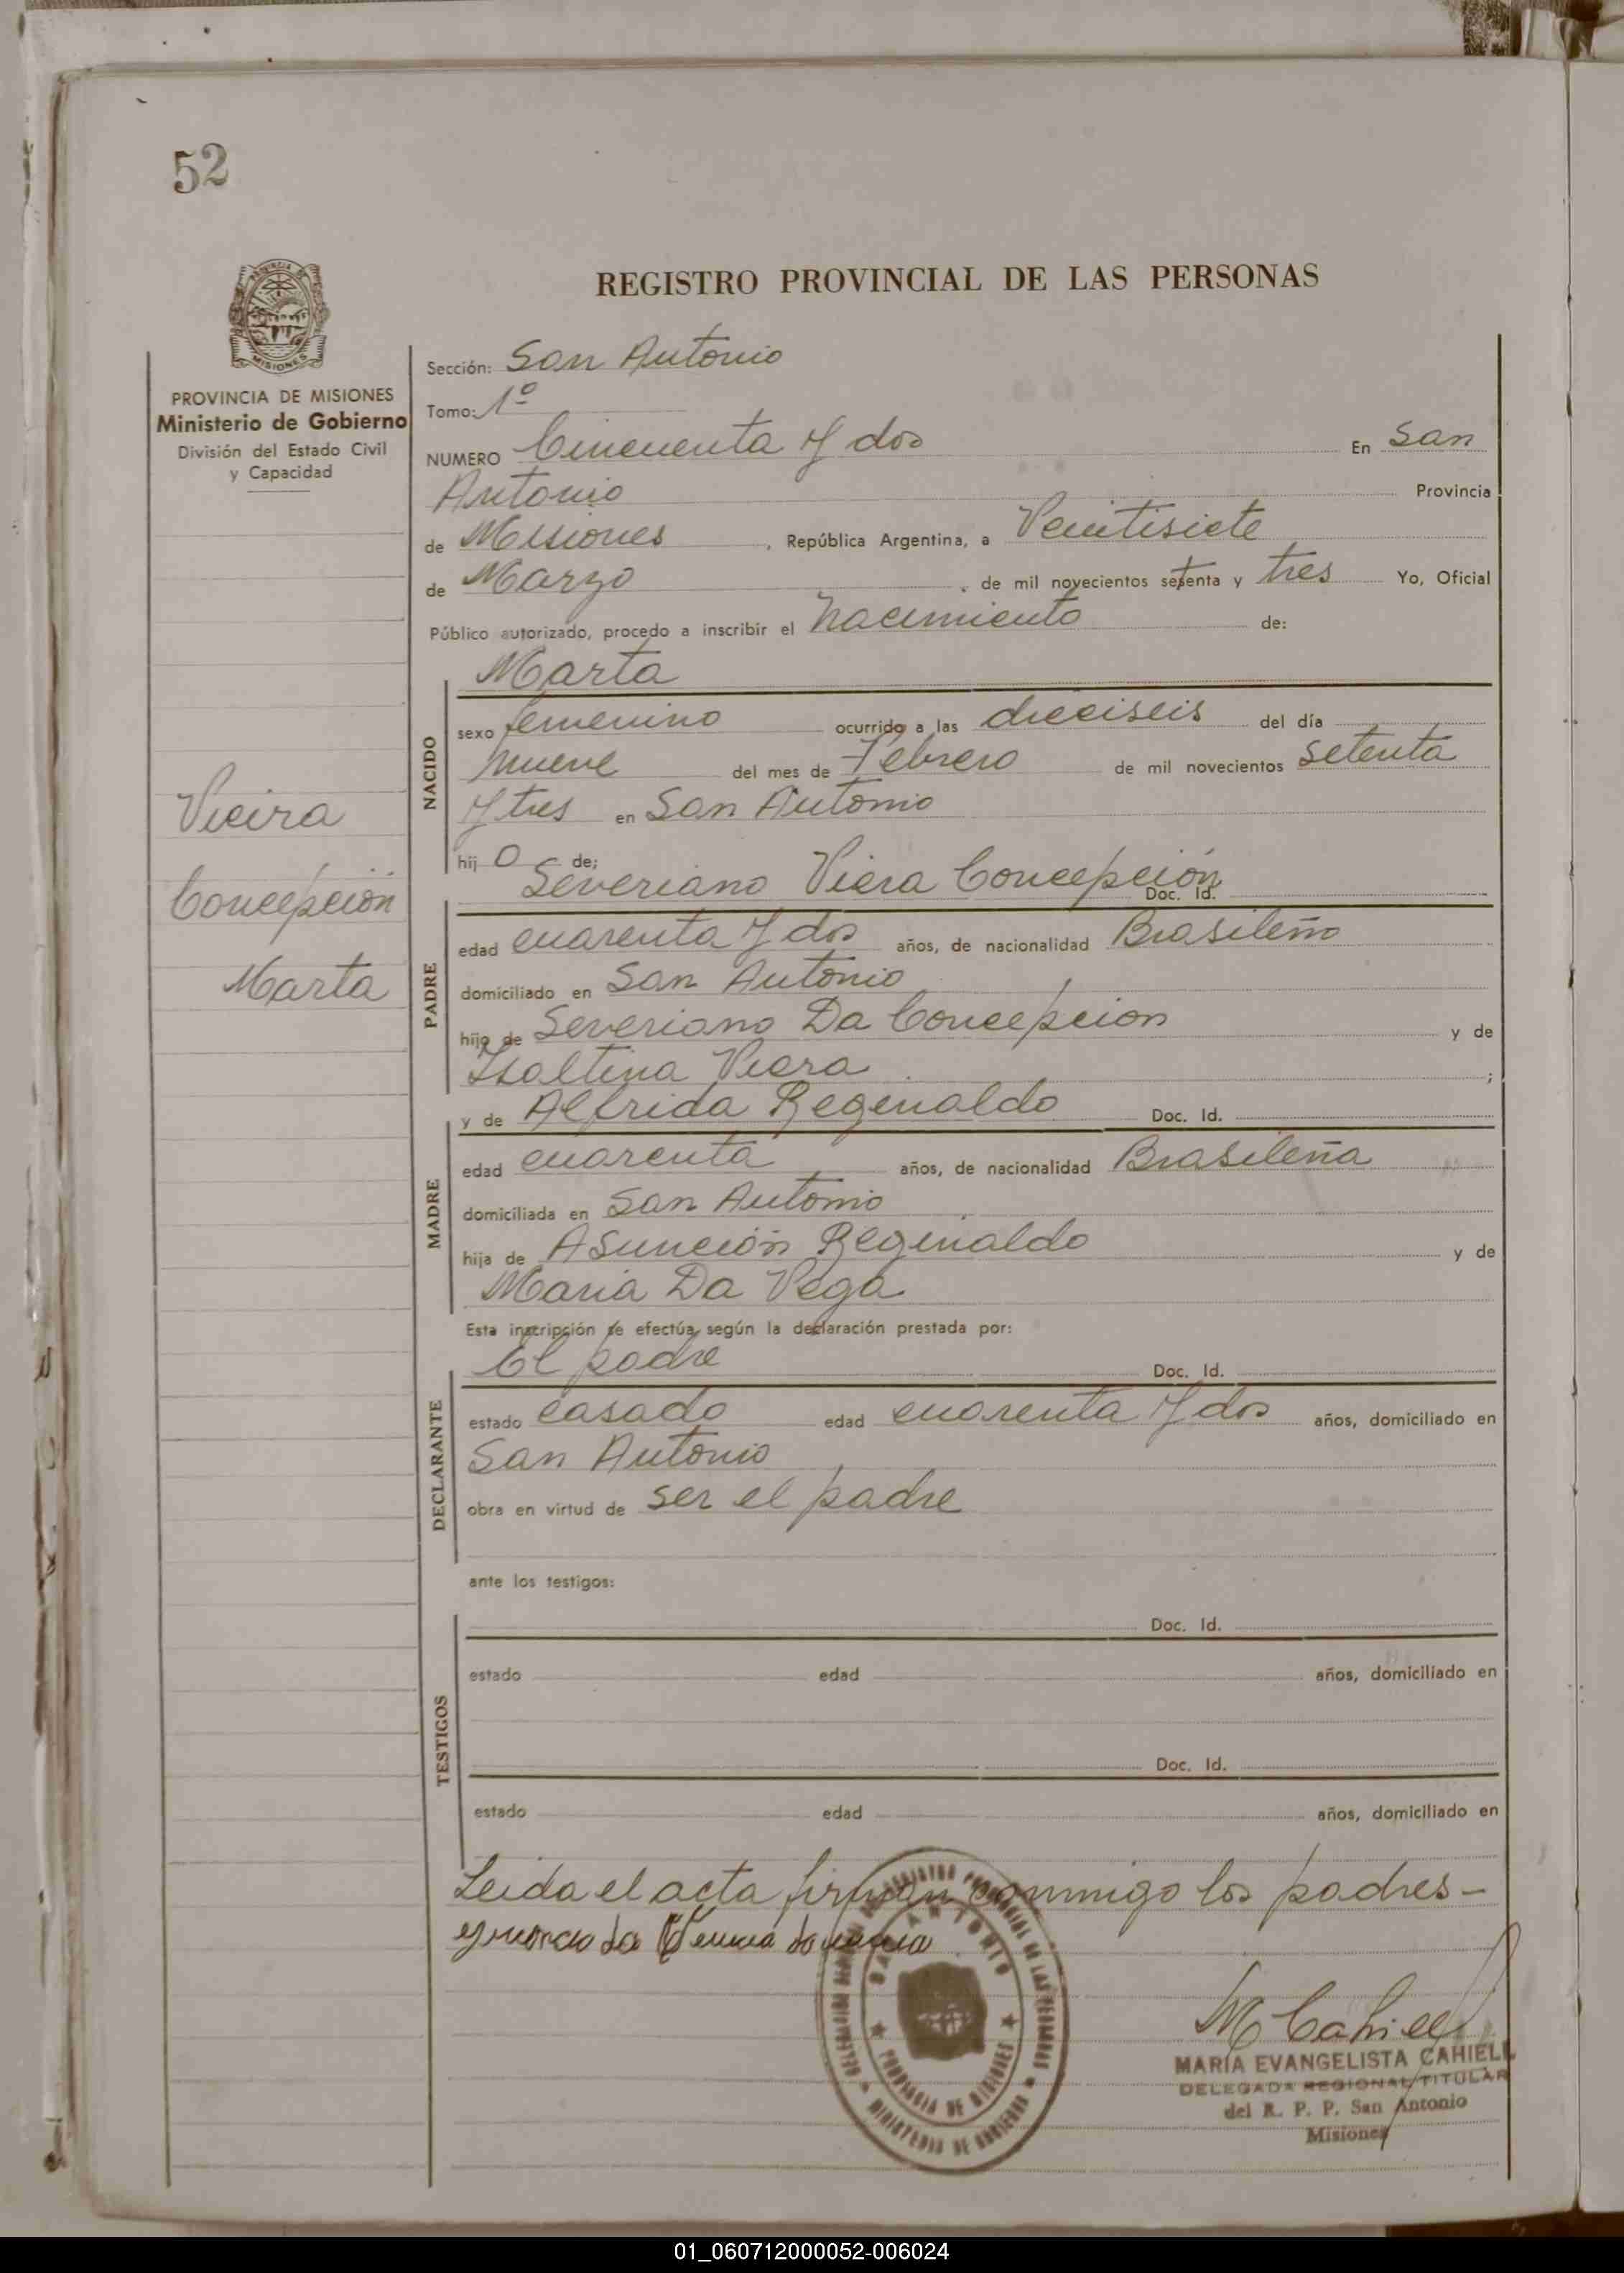 52
REGISTRO PROVINCIAL DE LAS PERSONAS
PROVINCIA DE MISIONES
Ministerio de Gobierno
División del Estado Civil
y Capacidad
Vieira
Concepción
Marta
Sección: San Antonio
Tomo: 1º
NUMERO Cincuenta y dos En San
Antonio Provincia
de Misiones, República Argentina, a Veintisiete
de Marzo, de mil novecientos setenta y tres Yo, Oficial
Público autorizado, procedo a inscribir el nacimiento de:
Marta
NACIDO
sexo femenino ocurrido a las dieciseis del día
nueve del mes de Febrero de mil novecientos setenta
y tres en San Antonio
hij o de;
Severiano Viera Concepción Doc. Id.
PADRE
edad cuarenta y dos años, de nacionalidad Brasileño
domiciliado en San Antonio
hijo de Severiano Da Concepcion y de
Isaltina Viera ;
y de Alfrida Reginaldo Doc. Id.
MADRE
edad cuarenta años, de nacionalidad Brasileña
domiciliada en San Antonio
hija de Asunción Reginaldo y de
Maria Da Vega
Esta inscripción se efectúa según la declaración prestada por:
El padre Doc. Id.
DECLARANTE
estado casado edad cuarenta y dos años, domiciliado en
San Antonio
obra en virtud de ser el padre
ante los testigos:
Doc. Id.
TESTIGOS
estado edad años, domiciliado en
Doc. Id.
estado edad años, domiciliado en
Leida el acta firman conmigo los padres-
SAN ANTONIO
PROVINCIA DE MISIONES
MINISTERIO DE GOBIERNO
M Cahiell
MARIA EVANGELISTA CAHIELL
DELEGADA REGIONAL TITULAR
del R. P. P. San Antonio
Misiones
01_060712000052-006024